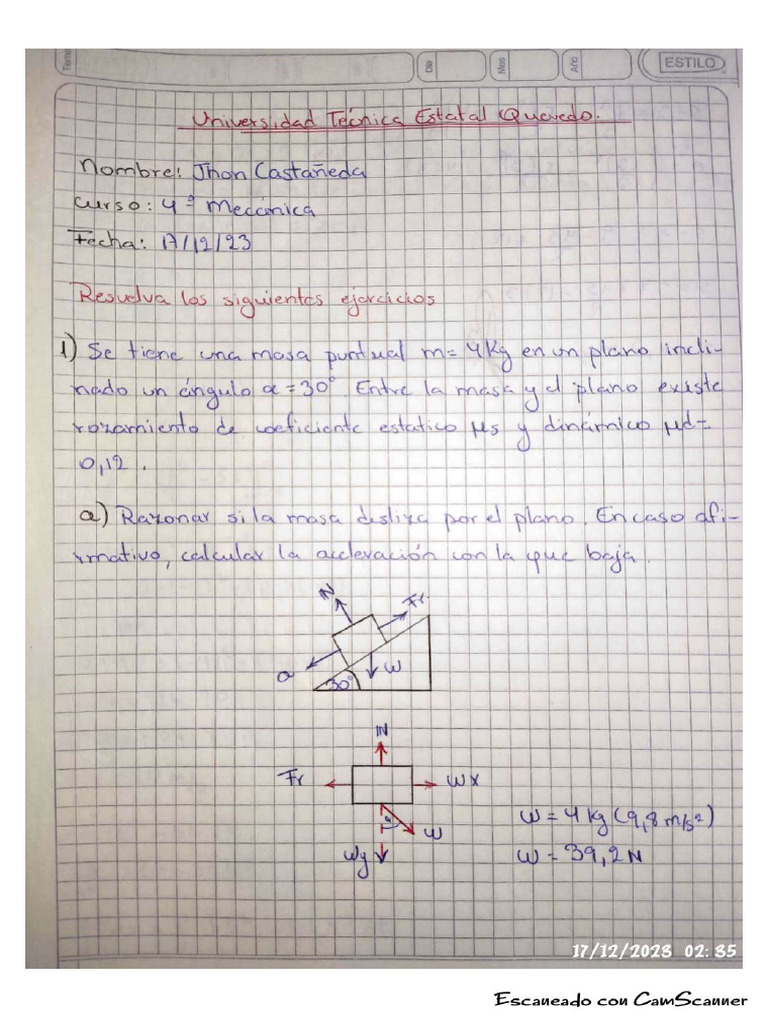 Tema
Día
Mes
Año
ESTILO
Universidad Técnica Estatal Quevedo.
Nombre: Jhon Castañeda
Curso: 4º Mecánica
Fecha: 17/12/23
Resuelva los siguientes ejercicios
1) Se tiene una masa puntual m= 4kg en un plano incli-
nado un ángulo α = 30°. Entre la masa y el plano existe
rozamiento de coeficiente estatico μs y dinámico μd=
0,12.
a) Razonar si la masa desliza por el plano. En caso afi-
rmativo, calcular la aceleración con la que baja.
N
Fr
a
W
30°
N
Fr
Wx
α
W
Wy
W = 4 kg (9,8 m/s²)
W = 39,2 N
17/12/2023 02:35
Escaneado con CamScanner